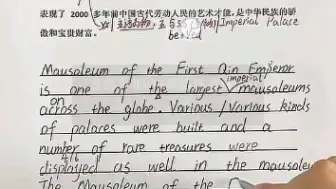 表现了 2000 多年前中国古代劳动人民的艺术才能,是中华民族的骄
傲和宝贵财富。
Imperial Palace
Mausoleum of the First Qin Emperor
imperial
is one of the largest mausoleums
on
across the globe. Various / Various kinds
of palaces were built and a
number of rare treasures were
displayed as well in the mausoleu
The Mausoleum of the